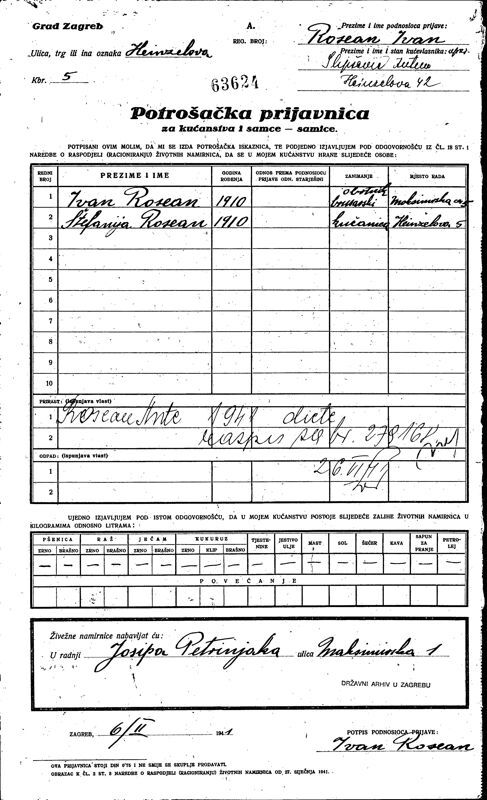 Grad Zagreb
A.
REG. BROJ:
Prezime i ime podnosioca prijave:
Rosean Ivan
Ulica, trg ili ina oznaka Heinzelova
Prezime i ime i stan kućevlasnika:
Kbr. 5
63624
Heinzelova 42
Potrošačka prijavnica
za kućanstva i samce — samice.
POTPISANI OVIM MOLIM, DA MI SE IZDA POTROŠAČKA ISKAZNICA, TE PODJEDNO IZJAVLJUJEM POD ODGOVORNOŠĆU IZ ČL. 18 ST. 1
NAREDBE O RASPODJELI (RACIONIRANJU) ŽIVOTNIH NAMIRNICA, DA SE U MOJEM KUĆANSTVU HRANE SLIJEDEĆE OSOBE:
REDNI BROJ PREZIME I IME GODINA ROĐENJA ODNOS PREMA PODNOSIOCU PRIJAVE ODN. STARJEŠINI ZANIMANJE MJESTO RADA
1 Ivan Rosean 1910 obrtnik Maksimirska
2 Štefanija Rosean 1910 kućanica Heinzelova 5
3
4
5
6
7
8
9
10
PRIRAST: (ispunjava vlast)
1 Rosean Ante 1941 diete
2
OTPAD: (ispunjava vlast)
1 26.VI/41
2
UJEDNO IZJAVLJUJEM POD ISTOM ODGOVORNOŠĆU, DA U MOJEM KUĆANSTVU POSTOJE SLIJEDEĆE ZALIHE ŽIVOTNIH NAMIRNICA U
KILOGRAMIMA ODNOSNO LITRAMA:
PŠENICA RAŽ JEČAM KUKURUZ TJESTENINE JESTIVO ULJE MAST SOL ŠEĆER KAVA SAPUN ZA PRANJE PETROLEJ
ZRNO BRAŠNO ZRNO BRAŠNO ZRNO BRAŠNO ZRNO KLIP BRAŠNO
— — — — — — — — — — — — — — — — —
POVEĆANJE
Živežne namirnice nabavljat ću:
U radnji Josipa Petrinjaka ulica Maksimirska 1
DRŽAVNI ARHIV U ZAGREBU
ZAGREB, 6/II 1941
POTPIS PODNOSIOCA PRIJAVE:
Ivan Rosean
OVA PRIJAVNICA STOJI DIN 0'75 I NE SMIJE SE SKUPLJE PRODAVATI.
OBRAZAC K ČL. 2 ST. 3 NAREDBE O RASPODJELI (RACIONIRANJU) ŽIVOTNIH NAMIRNICA OD 27. SIJEČNJA 1941.